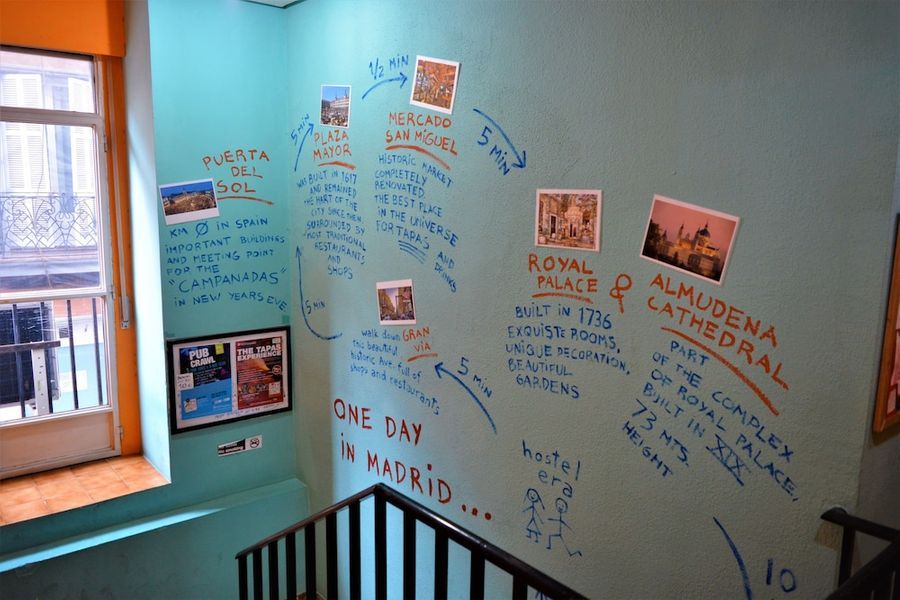 PUERTA
DEL
SOL
KM Ø IN SPAIN
IMPORTANT BUILDINGS
AND MEETING POINT
FOR THE
"CAMPANADAS"
IN NEW YEARS EVE
5 MIN
PLAZA
MAYOR
WAS BUILT IN 1617
AND REMAINED
THE HART OF THE
CITY SINCE THEN
SURROUNDED BY
MOST TRADITIONAL
RESTAURANTS
AND
SHOPS
1/2 MIN
MERCADO
SAN MIGUEL
HISTORIC MARKET
COMPLETELY
RENOVATED.
THE BEST PLACE
IN THE UNIVERSE
FOR TAPAS AND
DRINKS
5 MIN
ROYAL
PALACE &
BUILT IN 1736
EXQUISTE ROOMS,
UNIQUE DECORATION,
BEAUTIFUL
GARDENS
ALMUDENA
CATHEDRAL
PART
OF THE COMPLEX
OF ROYAL PALACE.
BUILT IN XIX.
73 MTS.
HEIGHT
5 MIN
GRAN
VIA
walk down
this beautiful
historic Ave. full of
shops and restaurants
5 MIN
PUB
CRAWL
THE TAPAS
EXPERIENCE
ONE DAY
iN MADRiD...
hostel
era
10